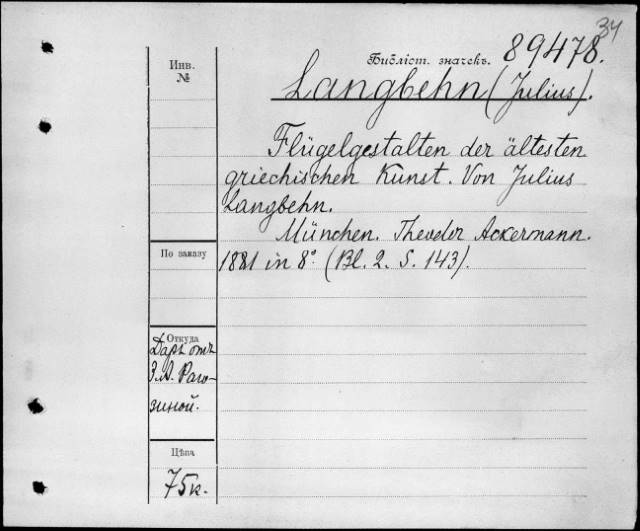 34
Библіот. значекъ. 89478.
Инв.
№
Langbehn (Julius).
Flügelgestalten der ältesten
griechischen Kunst. Von Julius
Langbehn.
München. Theodor Ackermann.
По заказу
1881 in 8°. (Bl. 2. S. 143).
Откуда
Даръ отъ
З. А. Раго-
зиной.
Цѣна
75 к.